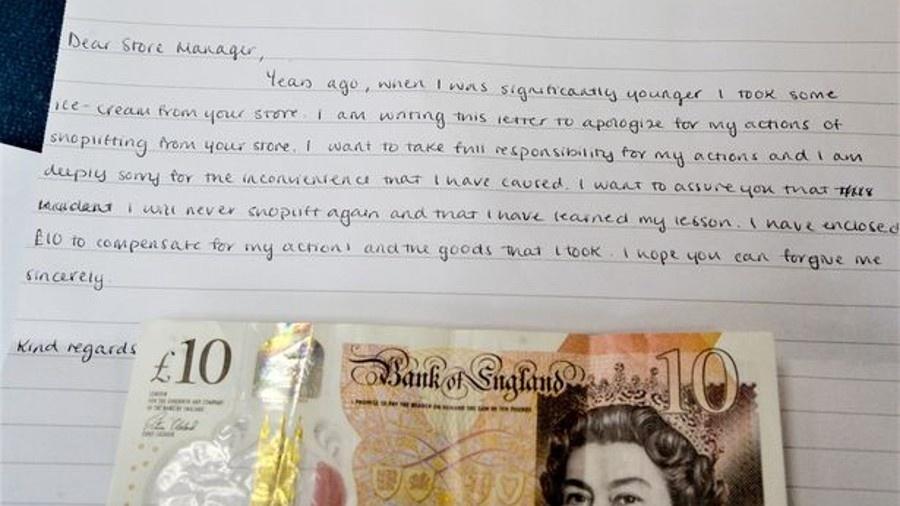 Dear Store Manager,
Years ago, when I was significantly younger I took some
ice-cream from your store. I am writing this letter to apologize for my actions of
shoplifting from your store. I want to take full responsibility for my actions and I am
deeply sorry for the inconvenience that I have caused. I want to assure you that this
incident I will never shoplift again and that I have learned my lesson. I have enclosed
£10 to compensate for my actions and the goods that I took. I hope you can forgive me
sincerely.
Kind regards
£10
Bank of England
10
I PROMISE TO PAY THE BEARER ON DEMAND THE SUM OF TEN POUNDS
LONDON
FOR THE GOVERNOR AND COMPANY
OF THE BANK OF ENGLAND
CHIEF CASHIER